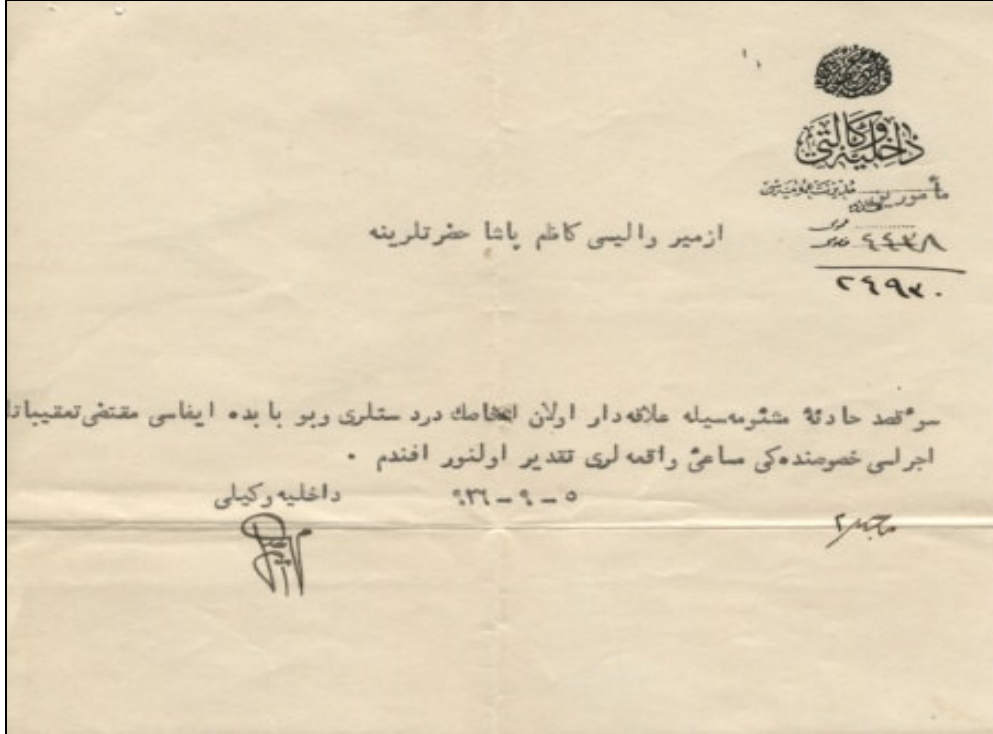 داخلیه وکالتی
مأمورین مدیریت عمومیه‌سی
٤٤٣٨
٢٤٩٢٠
ازمیر والیسی کاظم پاشا حضرتلرینه
سوءقصد حادثهٔ مشئومه‌سیله علاقه‌دار اولان اشخاصك دردستلری وبو بابده ایفاسی مقتضی تعقیباتك
اجراسی خصوصنده‌کی مساعیٔ واقعه‌لری تقدیر اولنور افندم .
٥ - ٩ - ٩٢٦
داخلیه وکیلی